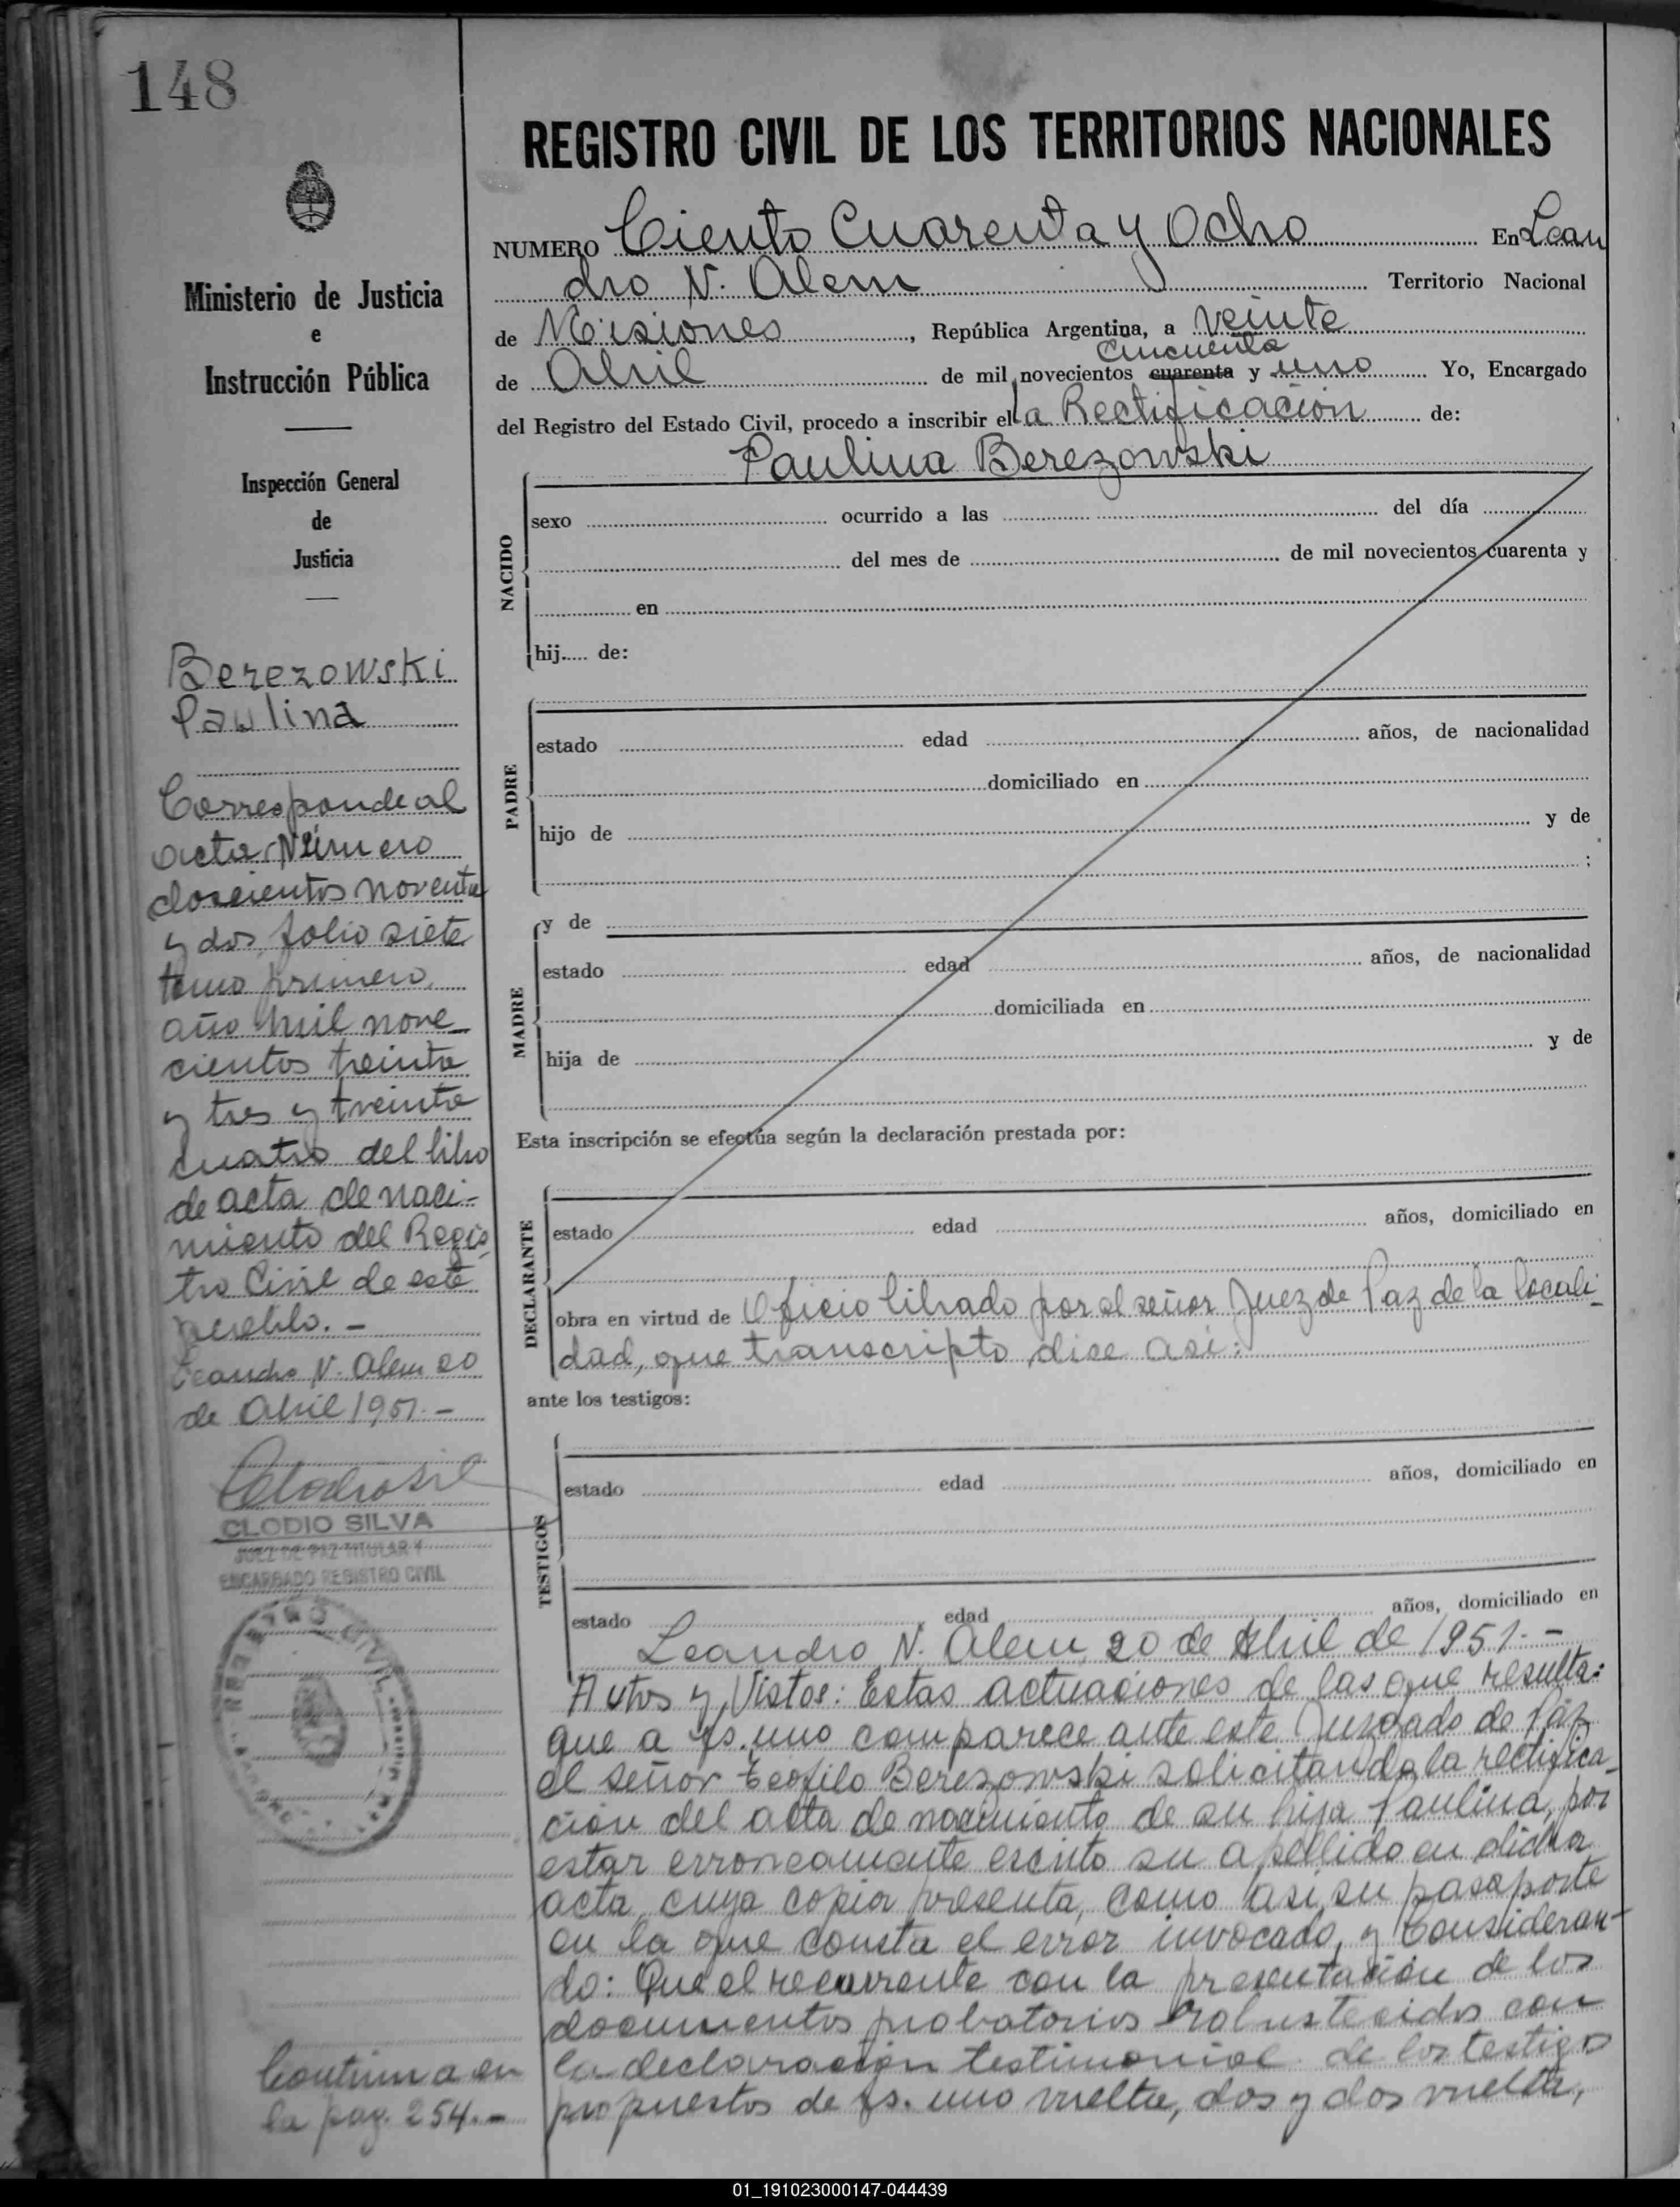 148
Ministerio de Justicia
e
Instrucción Pública
Inspección General
de
Justicia
Berezowski
Paulina
Corresponde al
acta Número
doscientos noventa
y dos, folio siete
tomo primero,
año mil nove_
cientos treinta
y tres y treinta
cuatro del libro
de acta de naci-
miento del Regis
tro Civil de este
pueblo. -
Leandro N. Alem 20
de Abril 1951. -
CLODIO SILVA
JUEZ DE PAZ TITULAR Y
ENCARGADO REGISTRO CIVIL
Continua en
la pag. 254. -
REGISTRO CIVIL DE LOS TERRITORIOS NACIONALES
NUMERO Ciento Cuarenta y Ocho En Lean
dro N. Alem Territorio Nacional
de Misiones, República Argentina, a veinte
cincuenta
de Abril de mil novecientos cuarenta y uno Yo, Encargado
del Registro del Estado Civil, procedo a inscribir el la Rectificación de:
Paulina Berezowski
NACIDO
sexo ocurrido a las del día
del mes de de mil novecientos cuarenta y
en
hij..... de:
PADRE
estado edad años, de nacionalidad
domiciliado en
hijo de y de
;
MADRE
y de
estado edad años, de nacionalidad
domiciliada en
hija de y de
Esta inscripción se efectúa según la declaración prestada por:
DECLARANTE
estado edad años, domiciliado en
obra en virtud de Oficio librado por el señor Juez de Paz de la locali_
dad, que transcripto dice asi:
ante los testigos:
TESTIGOS
estado edad años, domiciliado en
estado edad años, domiciliado en
Leandro N. Alem, 20 de Abril de 1951. -
Autos y Vistos: Estas actuaciones de las que resulta:
que a fs. uno comparece ante este Juzgado de Páz
el señor Teofilo Berezowski solicitando la rectifica_
ción del acta de nacimiento de su hija Paulina, por
estar erroneamente escrito su apellido en dicha
acta, cuya copia presenta, como asi su pasaporte
en la que consta el error invocado, y Consideran-
do: Que el recurrente con la presentación de los
documentos probatorios robustecidos con
la declaración testimonial de los testigos
propuestos de fs. uno vuelta, dos y dos vuelta,
01_191023000147-044439